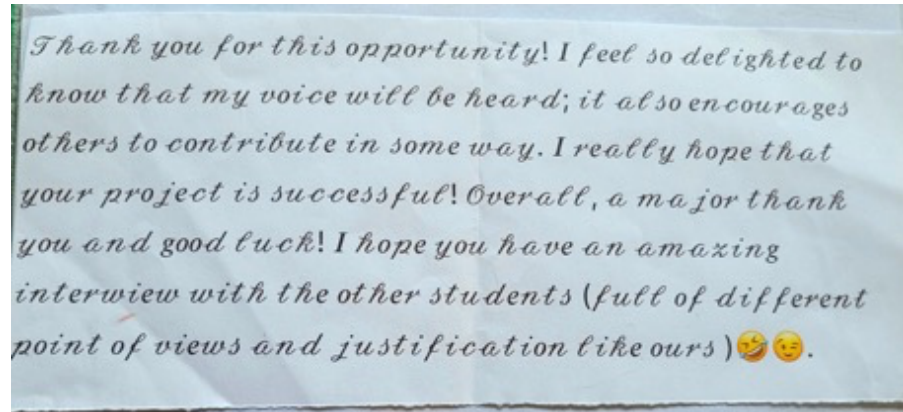 Thank you for this opportunity! I feel so delighted to
know that my voice will be heard; it also encourages
others to contribute in some way. I really hope that
your project is successful! Overall, a major thank
you and good luck! I hope you have an amazing
interwiew with the other students (full of different
point of views and justification like ours )🤣😉.